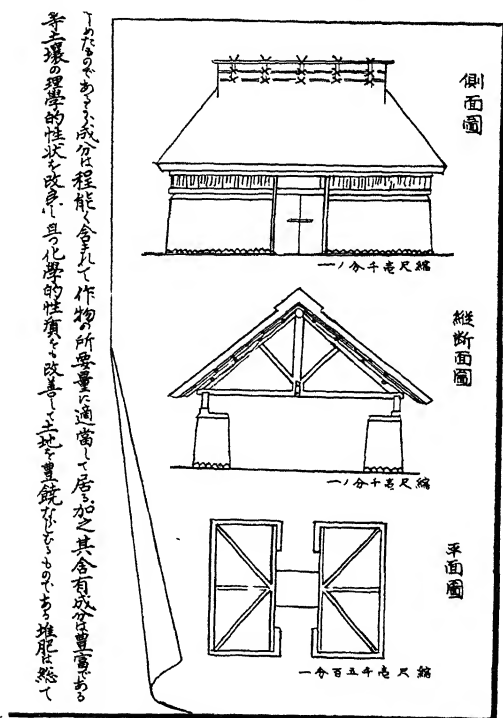 側面圖
縮尺壱千分ノ一
縦断面圖
縮尺壱千分ノ一
平面圖
縮尺壱千五百分一
しめたものである成分は程能く含まれて作物の所要量に適當して居る加之其含有成分は豊富である
等土壤の理學的性状を改良し且つ化學的性質をも改善して土地を豊饒ならしむるものである堆肥は総て